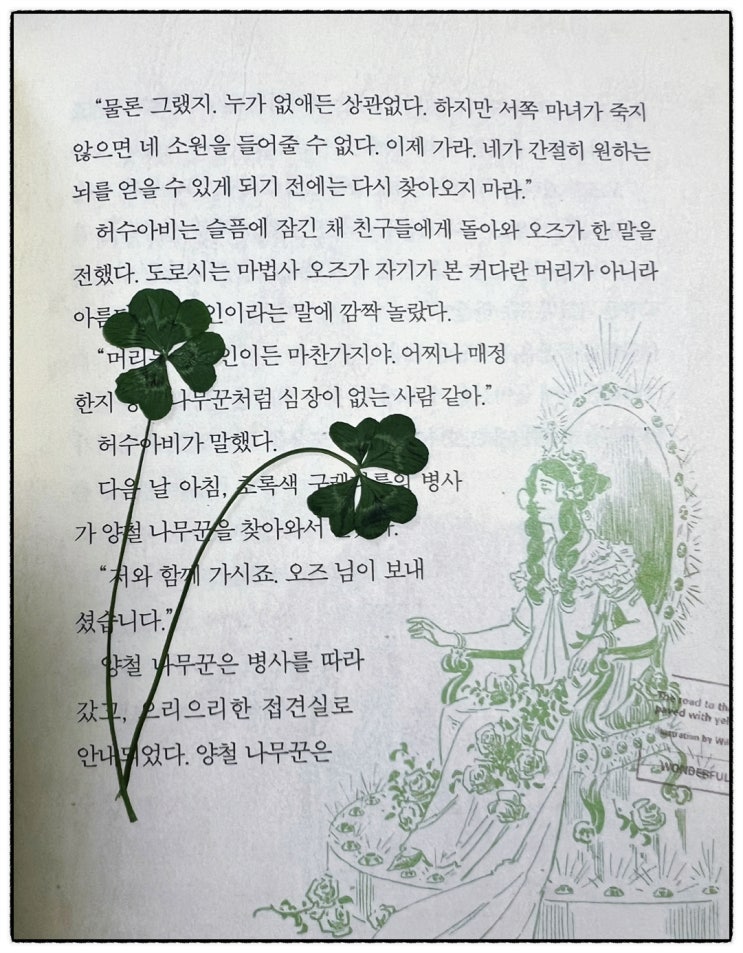 “물론 그랬지. 누가 없애든 상관없다. 하지만 서쪽 마녀가 죽지
않으면 네 소원을 들어줄 수 없다. 이제 가라. 네가 간절히 원하는
뇌를 얻을 수 있게 되기 전에는 다시 찾아오지 마라.”
허수아비는 슬픔에 잠긴 채 친구들에게 돌아와 오즈가 한 말을
전했다. 도로시는 마법사 오즈가 자기가 본 커다란 머리가 아니라
인이라는 말에 깜짝 놀랐다.
인이든 마찬가지야. 어찌나 매정
한지 나무꾼처럼 심장이 없는 사람 같아.”
허수아비가 말했다.
다음 날 아침, 초록색 병사
가 양철 나무꾼을 찾아와서
“저와 함께 가시죠. 오즈 님이 보내
셨습니다.”
양철 나무꾼은 병사를 따라
갔고, 으리으리한 접견실로
안내되었다. 양철 나무꾼은
The road to
paved with
by
WONDERFUL